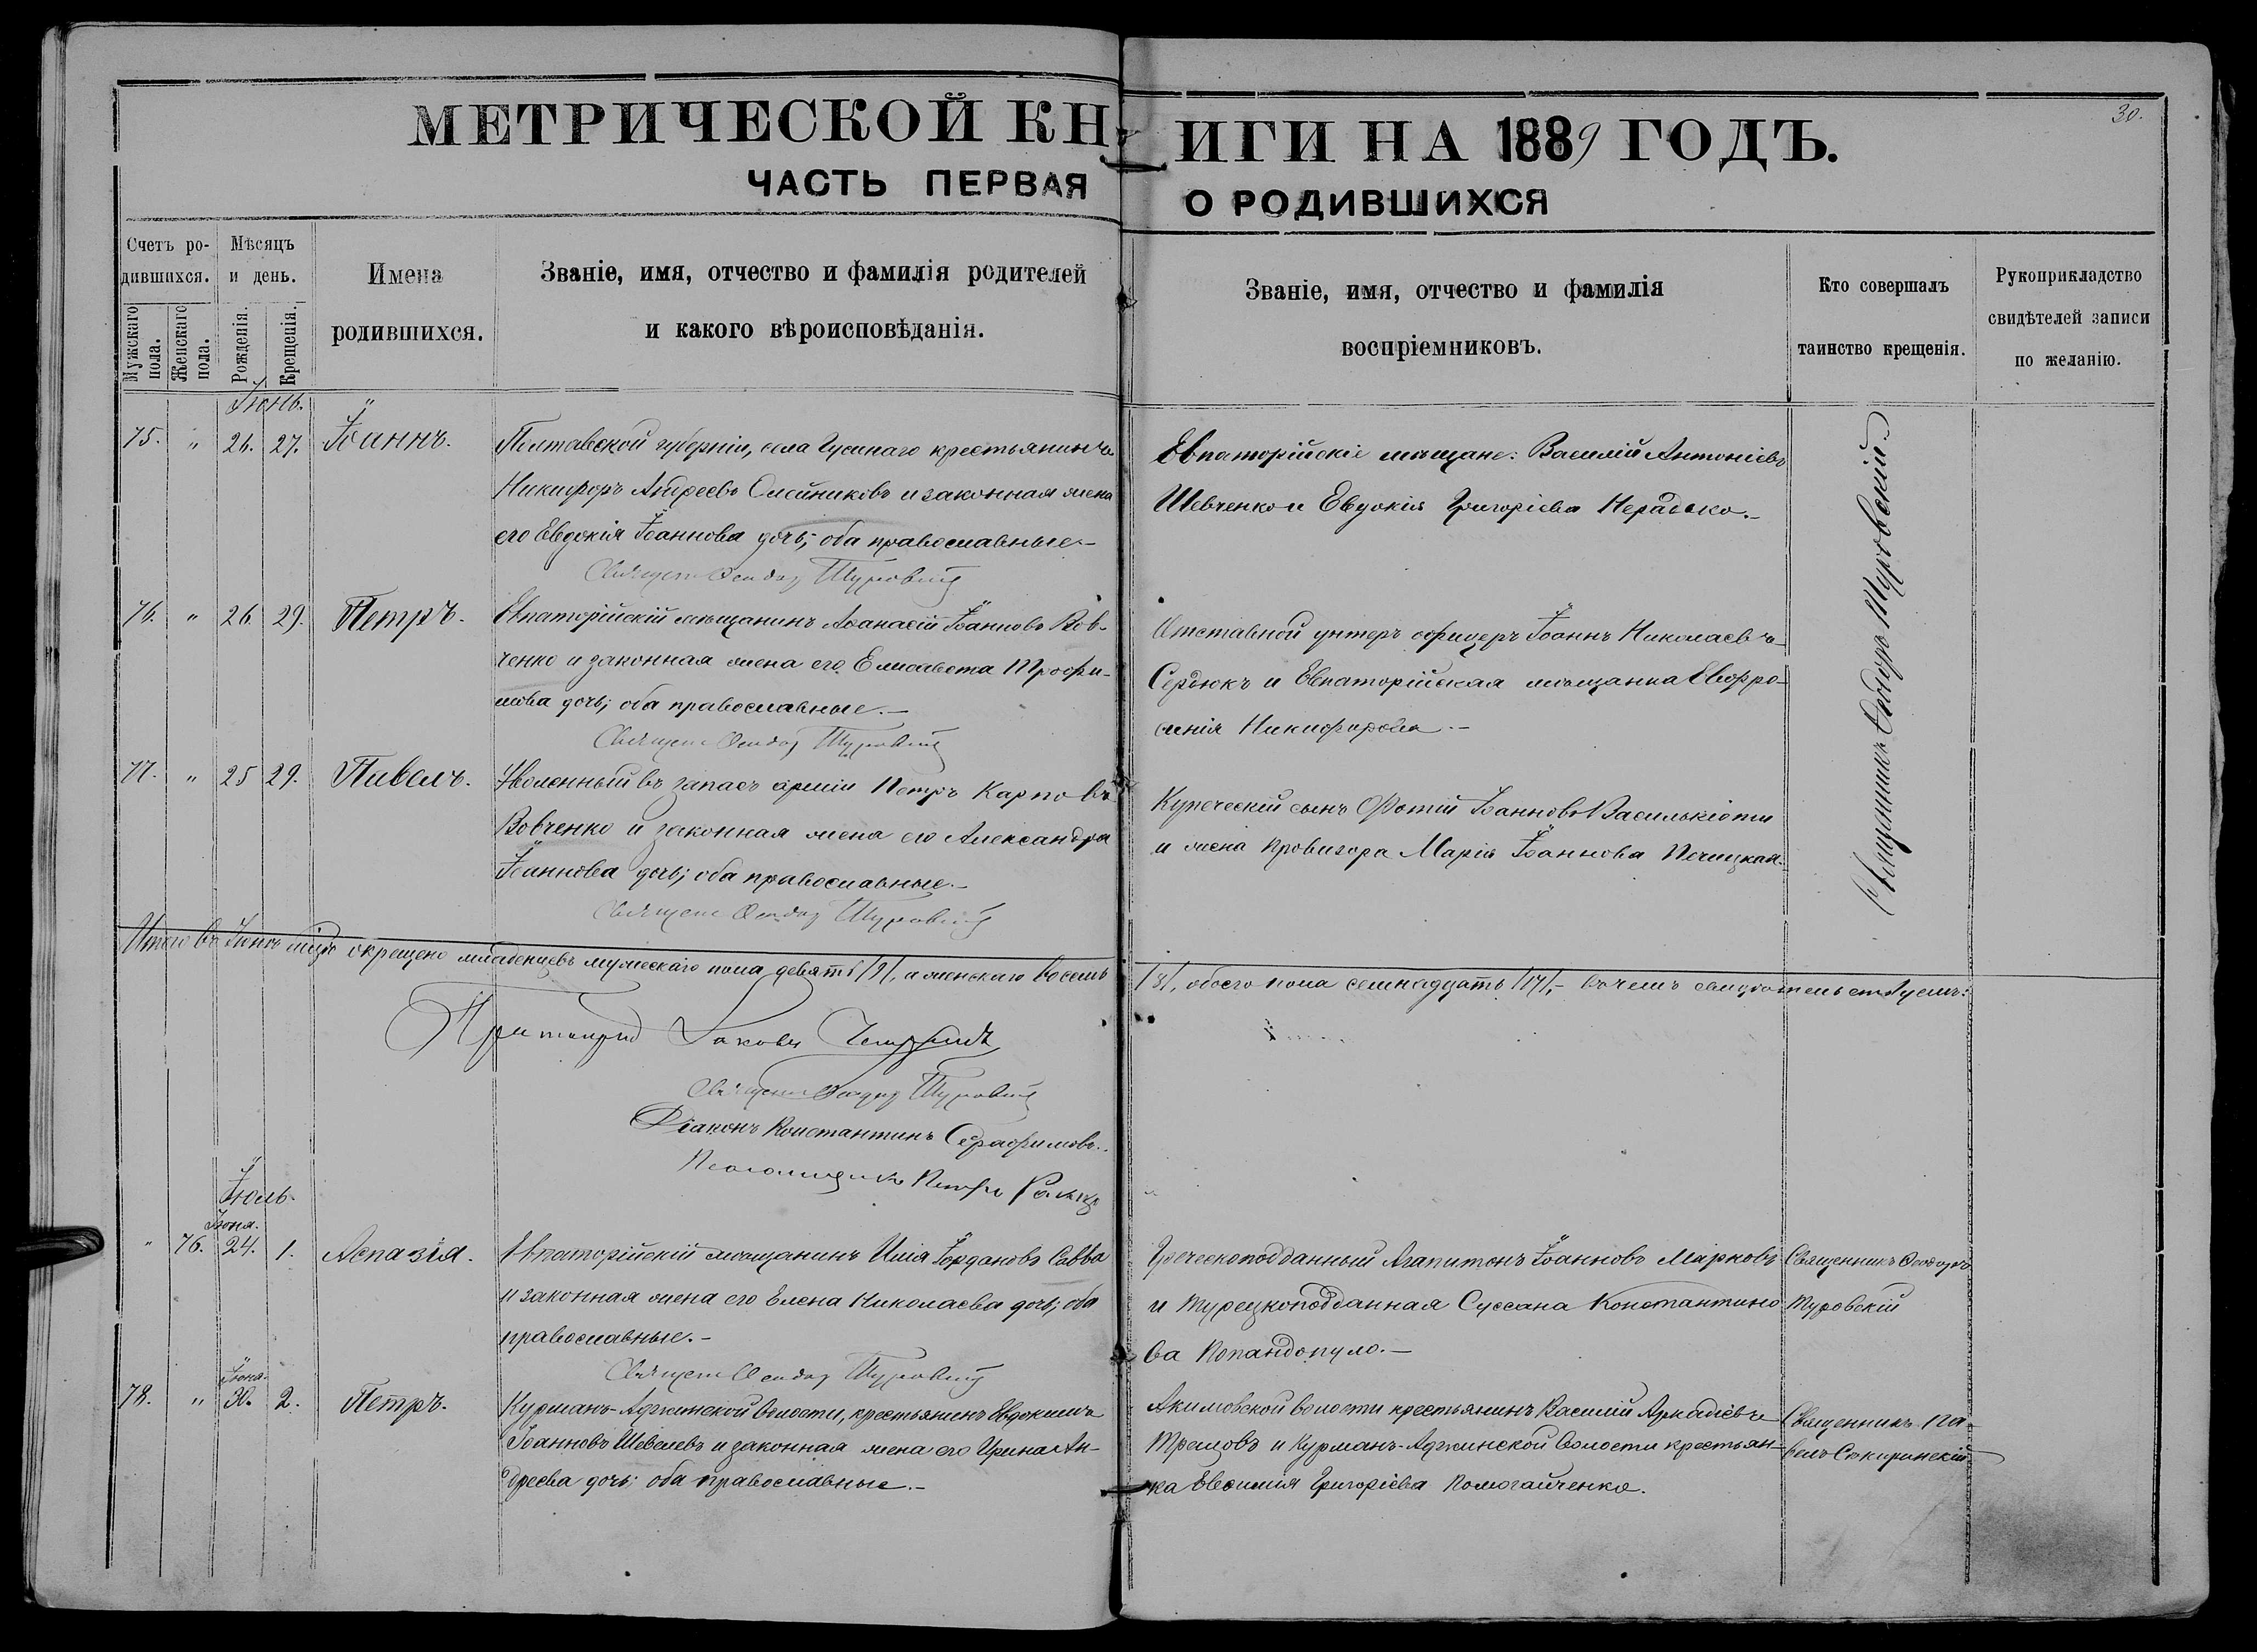 30.
МЕТРИЧЕСКОЙ КНИГИ НА 1889 ГОДЪ.
ЧАСТЬ ПЕРВАЯ О РОДИВШИХСЯ
Счетъ родившихся.
Мужскаго пола.
Женскаго пола.
Мѣсяцъ и день.
Рожденія.
Крещенія.
Имена
родившихся.
Званіе, имя, отчество и фамилія родителей
и какого вѣроисповѣданія.
Званіе, имя, отчество и фамилія
воспріемниковъ.
Кто совершалъ
таинство крещенія.
Рукоприкладство
свидѣтелей записи
по желанію.
Іюнь.
75. " 26. 27. Іоаннъ.
Полтавской губерніи, села Гусинаго крестьянинъ
Никифоръ Андреевъ Олейниковъ и законная жена
его Евдокія Іоаннова дочь; оба православные.-
Евпаторійскіе мѣщане: Василій Антоніевъ
Шевченко и Евдокія Григоріева Нерадько.-
Священникъ Ѳеодоръ Туровскій.
Священ Ѳеодор Туровскій
76. " 26. 29. Петръ.
Евпаторійскій мѣщанинъ Аѳанасій Іоанновъ Вов-
ченко и законная жена его Елисавета Трофи-
мова дочь; оба православные.-
Отставной унтеръ офицеръ Іоаннъ Николаевъ
Сердюкъ и Евпаторійская мѣщанка Евфро-
синія Никифорова.-
Священ Ѳеодор Туровскій
77. " 25 29. Павелъ.
Уволенный въ запасъ арміи Петръ Карповъ
Вовченко и законная жена его Александра
Іоаннова дочь; оба православные.-
Купеческій сынъ Фотій Іоанновъ Василькіоти
и жена провизора Марія Іоаннова Печицкая.
Священ Ѳеодор Туровскій
Итого въ Іюнѣ м-цѣ окрещено младенцевъ мужескаго пола девять /9/, а женскаго восемь
/8/, обоего пола семнадцать /17/,- въ чемъ свидѣтельствуемъ:
Протоіерей Іаковъ
Священ Ѳеодор Туровскій
Діаконъ Константинъ Серафимовъ.
Псаломщикъ Петръ
Іюль.
Іюня.
" 76. 24. 1. Аспазія.
Евпаторійскій мѣщанинъ Илія Іордановъ Савва
и законная жена его Елена Николаева дочь; оба
православные.-
Греческоподданный Агапитонъ Іоанновъ Марковъ
и турецкоподданная Суссана Константино
ва Попандопуло.-
Священникъ Ѳеодоръ
Туровскій
Священ Ѳеодор Туровскій
Іюня.
78. " 30. 2. Петръ.
Курманъ-Аджинской волости, крестьянинъ Евдокимъ
Іоанновъ Шевелевъ и законная жена его Ирина Ан-
дреева дочь; оба православные.-
Акимовской волости крестьянинъ Василій Аркадіевъ
Трешовъ и Курманъ-Аджинской волости крестьян-
ка Евѳимія Григоріева Помогайченко.
Священникъ Па-
велъ Сѣкиринскій